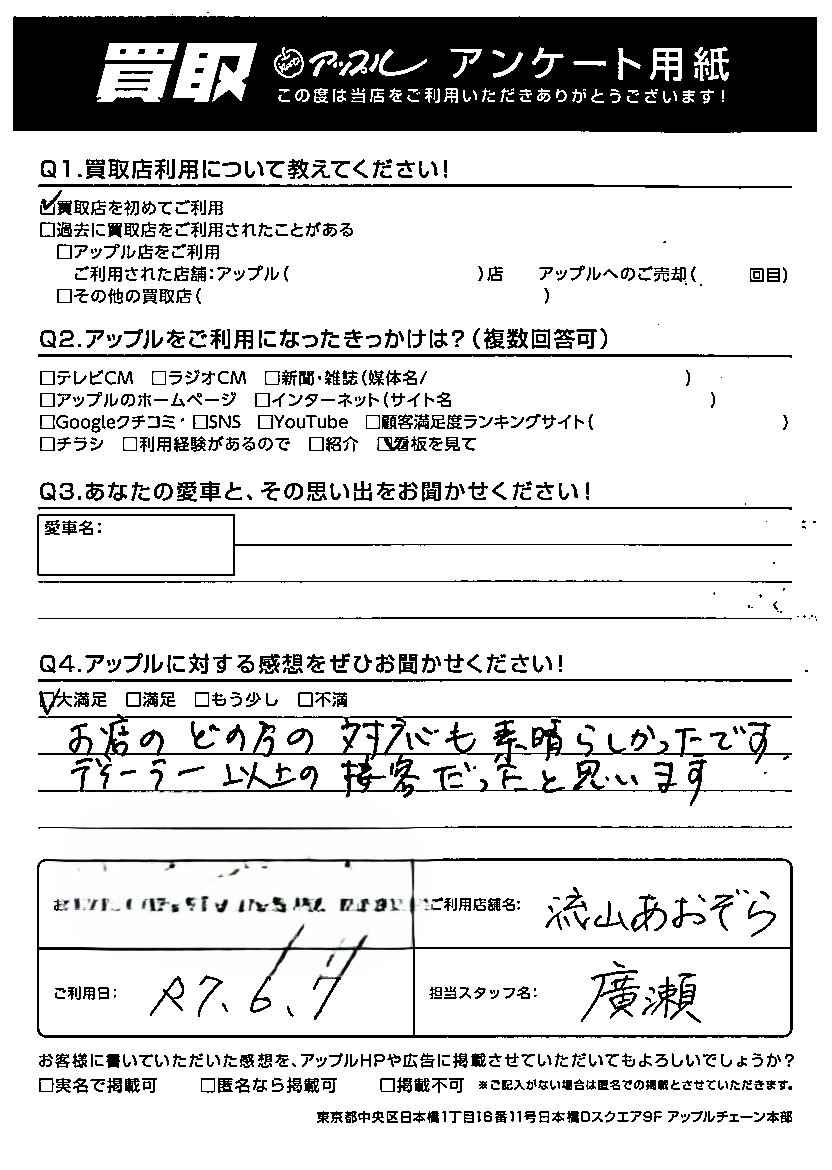 買取 アップル アンケート用紙
この度は当店をご利用いただきありがとうございます!
Q1.買取店利用について教えてください!
☑買取店を初めてご利用
□過去に買取店をご利用されたことがある
□アップル店をご利用
ご利用された店舗:アップル( )店 アップルへのご売却( 回目)
□その他の買取店( )
Q2.アップルをご利用になったきっかけは?(複数回答可)
□テレビCM □ラジオCM □新聞・雑誌(媒体名/ )
□アップルのホームページ □インターネット(サイト名 )
□Googleクチコミ □SNS □YouTube □顧客満足度ランキングサイト( )
□チラシ □利用経験があるので □紹介 ☑看板を見て
Q3.あなたの愛車と、その思い出をお聞かせください!
愛車名:
Q4.アップルに対する感想をぜひお聞かせください!
☑大満足 □満足 □もう少し □不満
お店のどの方の対応も素晴らしかったです
ディーラー以上の接客だったと思います
お
ご利用店舗名: 流山あおぞら
ご利用日: R7.6.7
担当スタッフ名: 廣瀬
お客様に書いていただいた感想を、アップルHPや広告に掲載させていただいてもよろしいでしょうか?
□実名で掲載可 □匿名なら掲載可 □掲載不可 ※ご記入がない場合は匿名での掲載とさせていただきます。
東京都中央区日本橋1丁目16番11号日本橋Dスクエア9F アップルチェーン本部